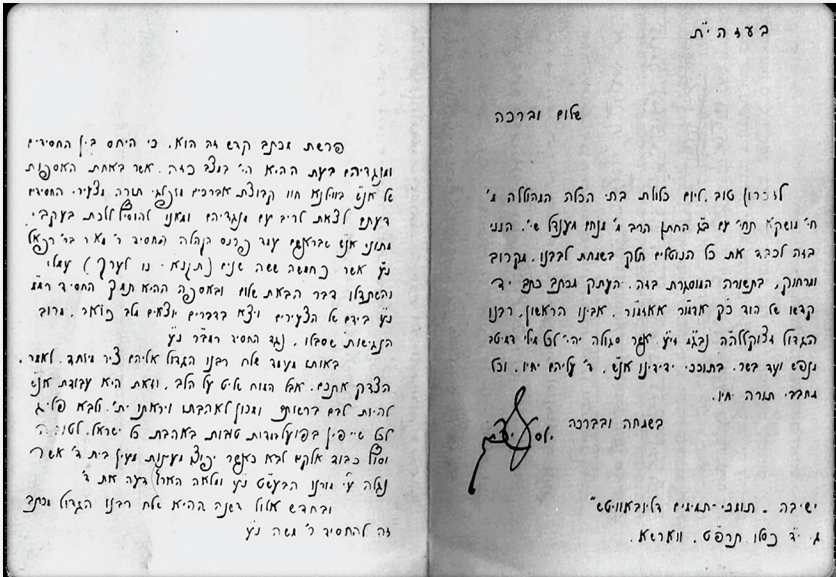 בעזה י״ת
שלום וברכה
לזכרון טוב, ליום כלולת בתי הכלה המהוללה מ'
חי' מושקא תחי' עם ב״ג החתן הרב מ' מנחם מענדל שי', הנני
בזה לכבד את כל הנוטלים חלק בשמחת לבבנו, מקרוב
ומרחוק, בתשורה המוסגרת בזה, העתק מכתב כתב יד
קדשו של הוד כ״ק אדמו״ר אאזמו״ר, אבינו הראשון, רבנו
הגדול זצוקללה״ה נבג״מ זי״ע אשר סגולה יהי' לכל מילי דמיטב
מנפש ועד בשר, בתוככי ידידינו אנ״ש, ד' עליהם יחיו, וכל
מחבבי תורה יחיו.
בשמחה ובברכה
ישיבה - תומכי-תמימים דליובאוויטש"
ג. י״ד כסלו תרפ״ט. ווארשא.
פרשת מכתב קדש זה הוא, כי היחס בין החסידים
ומנגדיהם בעת ההיא הי' במצב כזה, אשר באחת האספות
של אנ״ש בווילנא חוו קבוצת אברכים מופלגי תורה מצעירי החסידים
דעתם לצאת לריב עם מנגדיהם ומאנו להוסיף ללכת בעקבי
מתוני אנ״ש שבראשם עמד פרנס הקהלה החסיד ר' מאיר בר' רפאל
נ״ע אשר כחמשה ששה שנים (תקנ״א - נו לערך) עמלו
והשתדלו דבר הבאת שלום ובאספה ההיא תמך החסיד
נ״ע בידם של הצעירים ויצא בדברים יוצאים מלב כואב, מרוב
הנגישות שסבלו, נגד החסיד נ״ע
באותו מעמד שלח רבנו הגדול אליהם ציר מיוחד, לאמר.
הצדק אתכם, אבל המוח שליט על הלב, וזאת היא עבודת אנ״ש
להיות לבם ברשותם ומכוון לאהבתו ויראתו ית', ולבא פליג
לכל שייפין בפועל ועבודות טובות באהבת כל ישראל, לטובה
וסוף כבוד אלקים לבא כאשר יפוצו מעינות מעין בית ד' אשר
נגלה ע״י מורנו הבעש״ט נ״ע ומלאה הארץ דעה את ד'
ובחדש אלול דשנה ההיא שלח רבנו הגדול מכתב
זה להחסיד ר' משה נ״ע